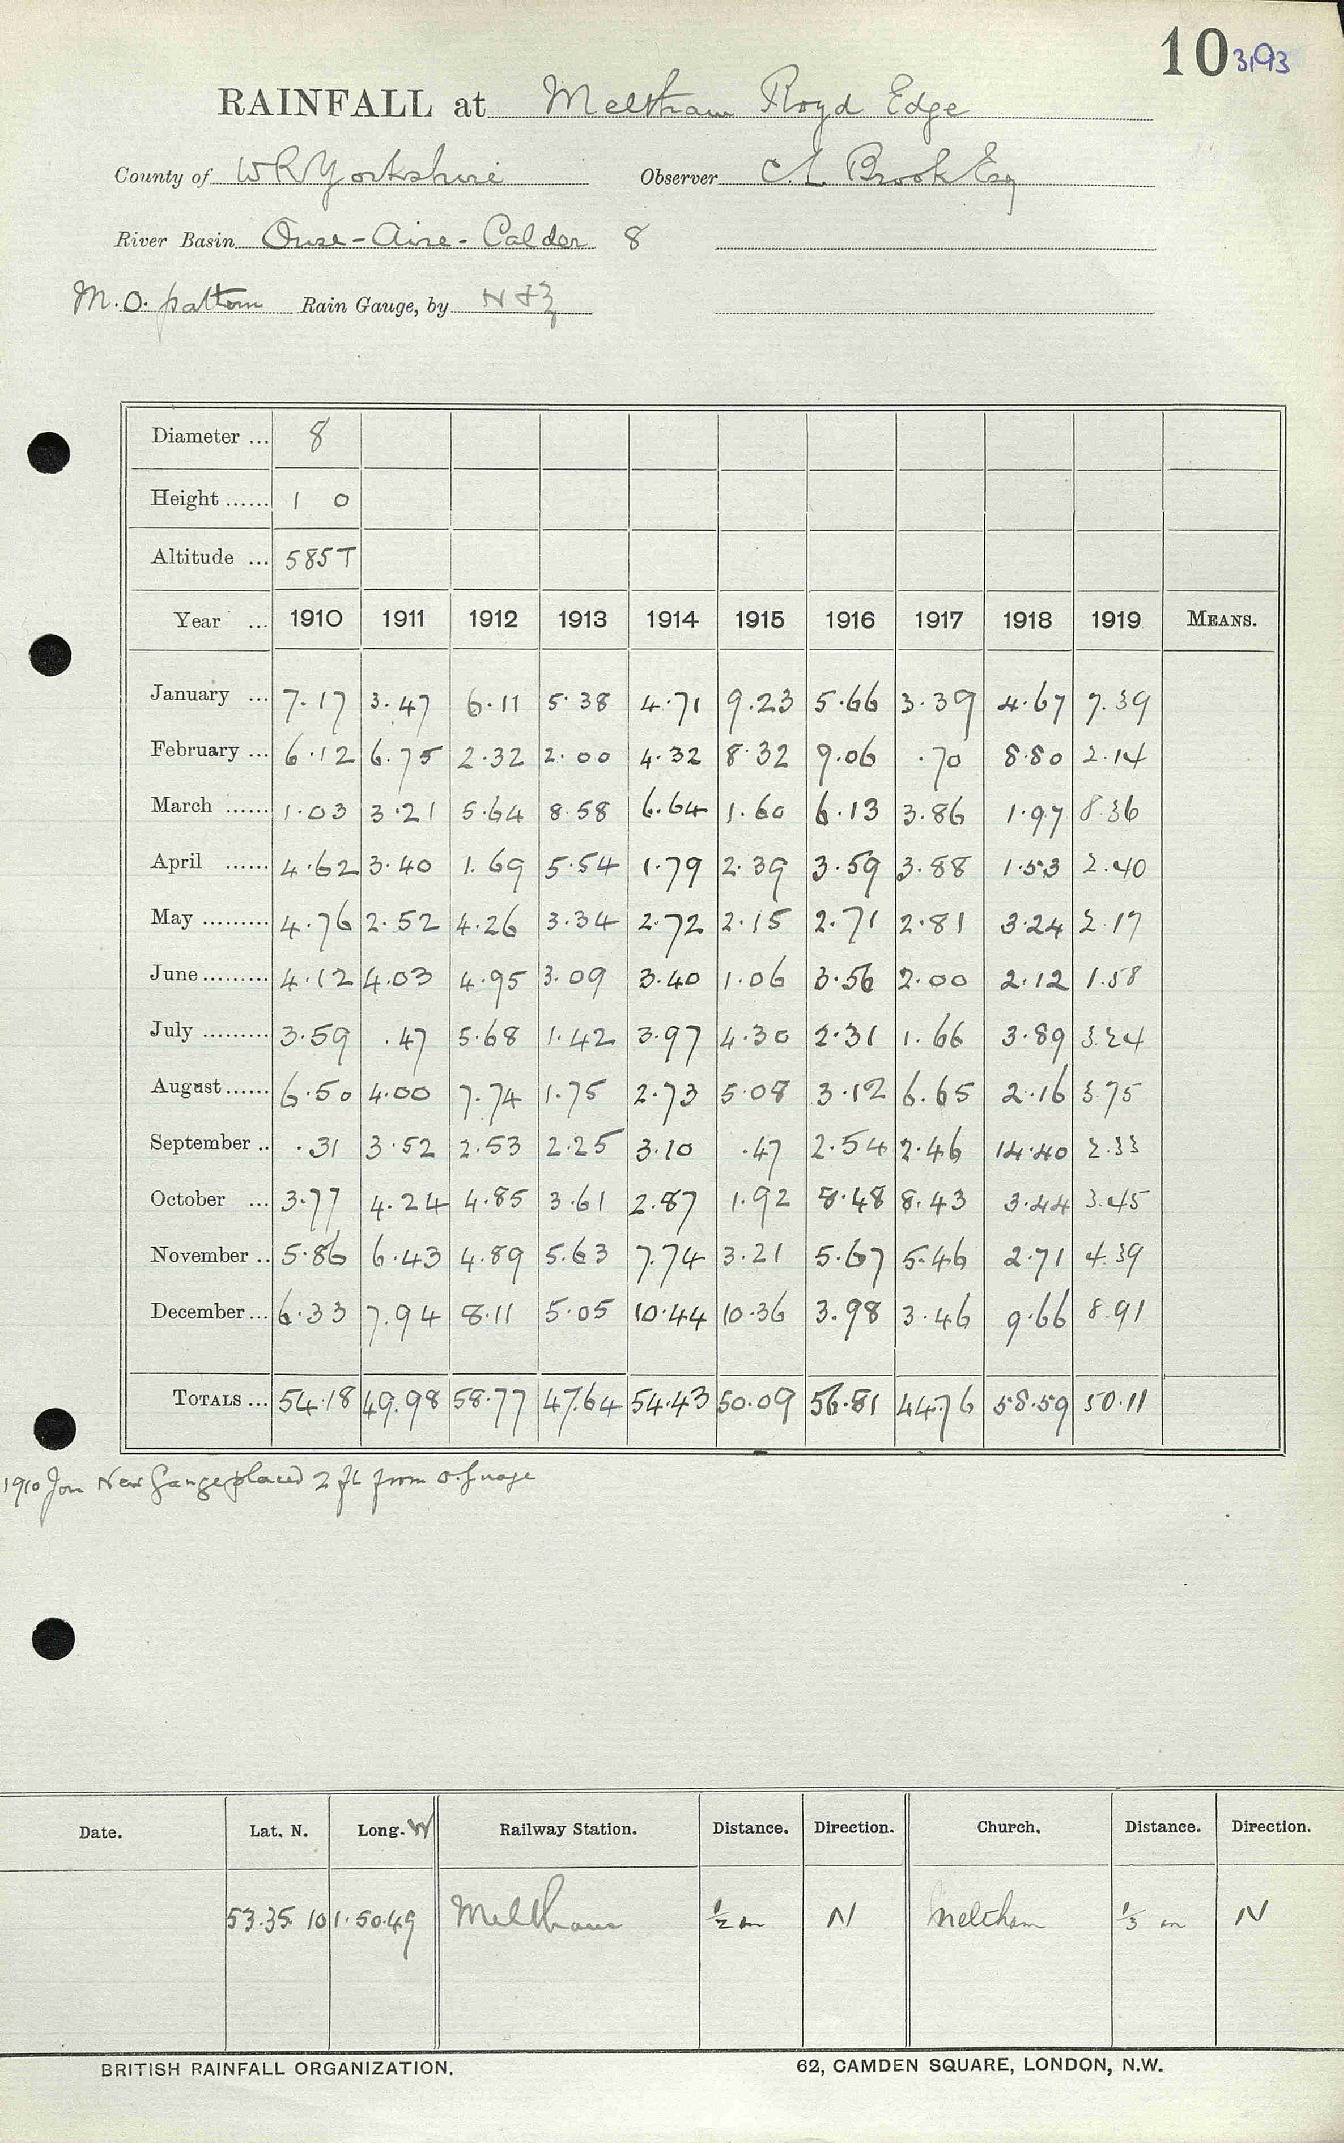 10 3193
RAINFALL at Meltham Royd Edge
County of W R Yorkshire Observer C. L. Brook Esq
River Basin Ouse - Aire - Calder 8
M. O. pattern Rain Gauge, by N & Z
Diameter ... 8
Height ...... 1 0
Altitude ... 585 T
Year ... 1910 1911 1912 1913 1914 1915 1916 1917 1918 1919 MEANS.
January ... 7.17 3.47 6.11 5.38 4.71 9.23 5.66 3.39 4.67 7.39
February ... 6.12 6.75 2.32 2.00 4.32 8.32 9.06 .70 8.80 2.14
March ...... 1.03 3.21 5.64 8.58 6.64 1.60 6.13 3.86 1.97 8.36
April ...... 4.62 3.40 1.69 5.54 1.79 2.39 3.59 3.88 1.53 2.40
May ......... 4.76 2.52 4.26 3.34 2.72 2.15 2.71 2.81 3.24 2.17
June ......... 4.12 4.03 4.95 3.09 3.40 1.06 3.56 2.00 2.12 1.58
July ......... 3.59 .47 5.68 1.42 3.97 4.30 2.31 1.66 3.89 3.24
August ...... 6.50 4.00 7.74 1.75 2.73 5.08 3.12 6.65 2.16 3.75
September .. .31 3.52 2.53 2.25 3.10 .47 2.54 2.46 14.40 2.33
October ... 3.77 4.24 4.85 3.61 2.87 1.92 8.48 8.43 3.44 3.45
November .. 5.86 6.43 4.89 5.63 7.74 3.21 5.67 5.46 2.71 4.39
December ... 6.33 7.94 8.11 5.05 10.44 10.36 3.98 3.46 9.66 8.91
TOTALS ... 54.18 49.98 58.77 47.64 54.43 50.09 56.81 44.76 58.59 50.11
1910 Jan New Gauge placed 2 ft from o. gauge
Date. Lat. N. Long. W Railway Station. Distance. Direction. Church. Distance. Direction.
53.35 10 1.50.49 Meltham 1/2 m N Meltham 1/3 m N
BRITISH RAINFALL ORGANIZATION. 62, CAMDEN SQUARE, LONDON, N.W.